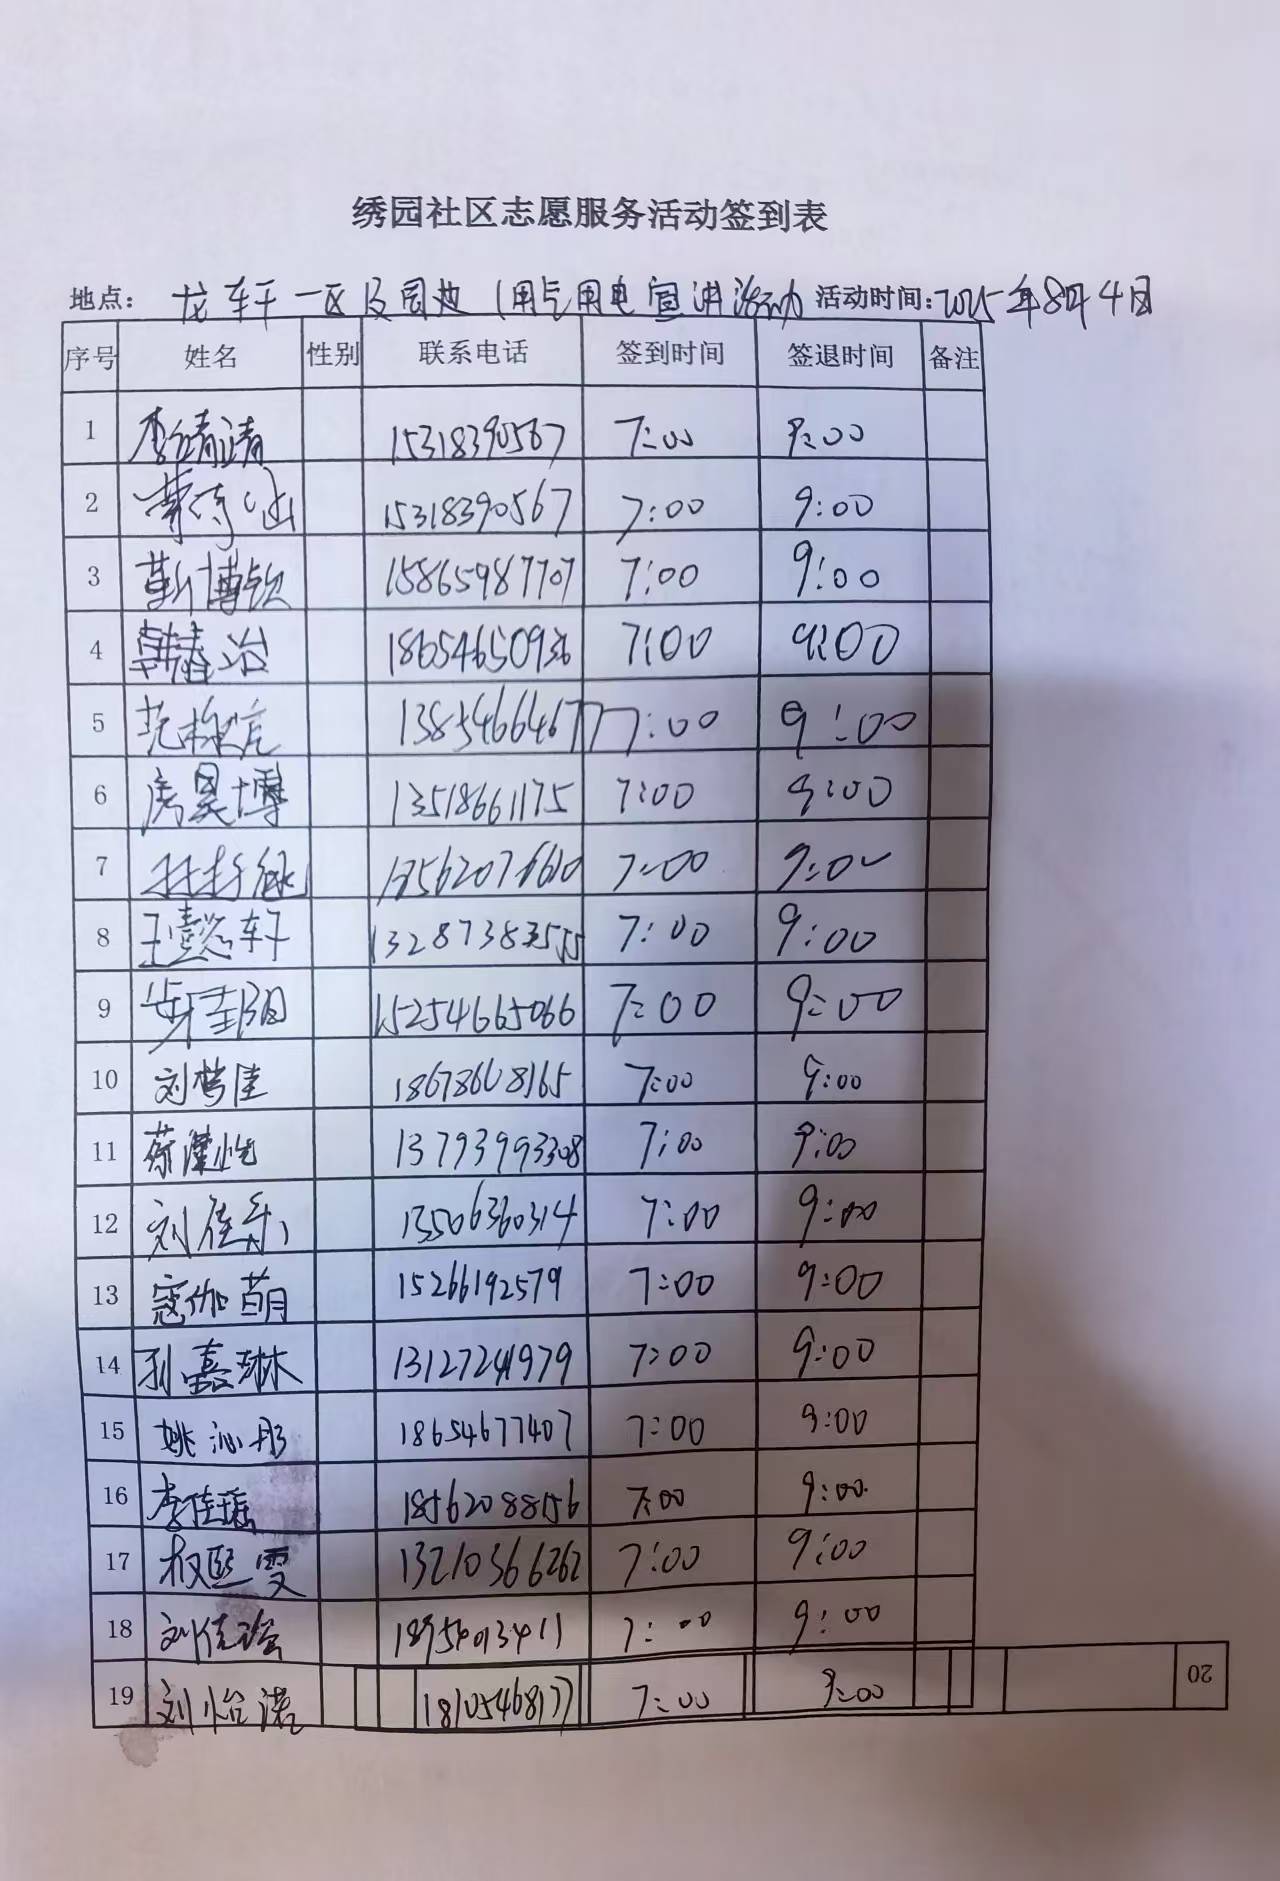 绣园社区志愿服务活动签到表
地点： 龙轩一区及周边（用气用电宣讲活动 活动时间：2025年8月4日
序号 姓名 性别 联系电话 签到时间 签退时间 备注
1 李靖清 15318390567 7:00 9:00
2 15318390567 7:00 9:00
3 靳博钦 15865987707 7:00 9:00
4 韩春冶 7:00 9:00
5 范 13854664677 7:00 9:00
6 房昊博 13518661175 7:00 9:00
7 7:00 9:00
8 王懿轩 7:00 9:00
9 步 15254665066 7:00 9:00
10 刘梦佳 18678608165 7:00 9:00
11 13793993308 7:00 9:00
12 刘佳乐 13506360314 7:00 9:00
13 寇伽萌 15266192579 7:00 9:00
14 孙嘉琳 13127241979 7:00 9:00
15 姚沁彤 18654677407 7:00 9:00
16 李佳瑶 18562088156 7:00 9:00
17 权熙雯 13210366262 7:00 9:00
18 刘佳 18954013411 7:00 9:00
19 刘怡诺 18105468177 7:00 9:00
20